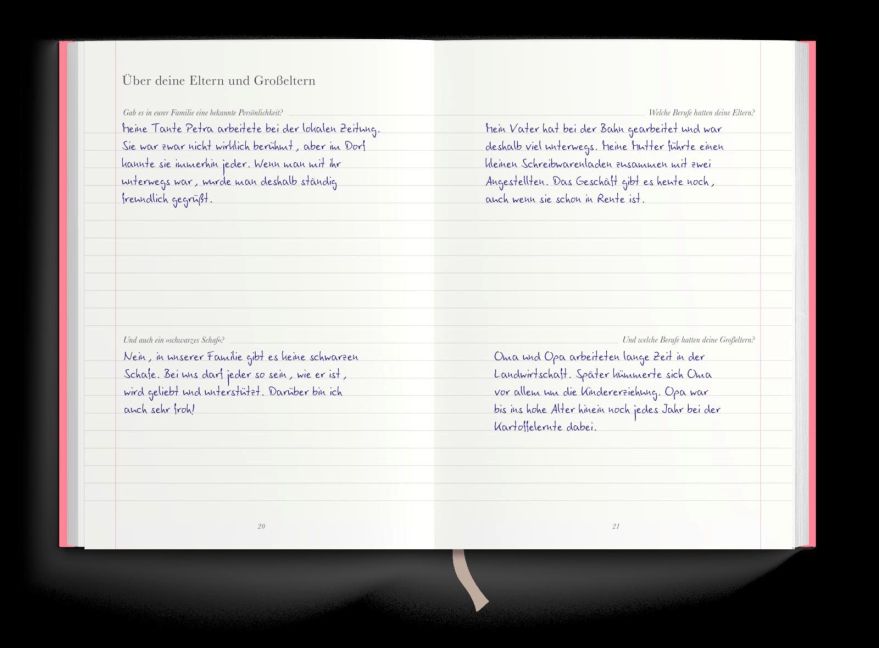 Über deine Eltern und Großeltern
Gab es in eurer Familie eine bekannte Persönlichkeit?
Meine Tante Petra arbeitete bei der lokalen Zeitung.
Sie war zwar nicht wirklich berühmt, aber im Dorf
kannte sie immerhin jeder. Wenn man mit ihr
unterwegs war, wurde man deshalb ständig
freundlich gegrüßt.
Und auch ein »schwarzes Schaf«?
Nein, in unserer Familie gibt es keine schwarzen
Schafe. Bei uns darf jeder so sein, wie er ist,
wird geliebt und unterstützt. Darüber bin ich
auch sehr froh!
20
Welche Berufe hatten deine Eltern?
Mein Vater hat bei der Bahn gearbeitet und war
deshalb viel unterwegs. Meine Mutter führte einen
kleinen Schreibwarenladen zusammen mit zwei
Angestellten. Das Geschäft gibt es heute noch,
auch wenn sie schon in Rente ist.
Und welche Berufe hatten deine Großeltern?
Oma und Opa arbeiteten lange Zeit in der
Landwirtschaft. Später kümmerte sich Oma
vor allem um die Kindererziehung. Opa war
bis ins hohe Alter hinein noch jedes Jahr bei der
Kartoffelernte dabei.
21